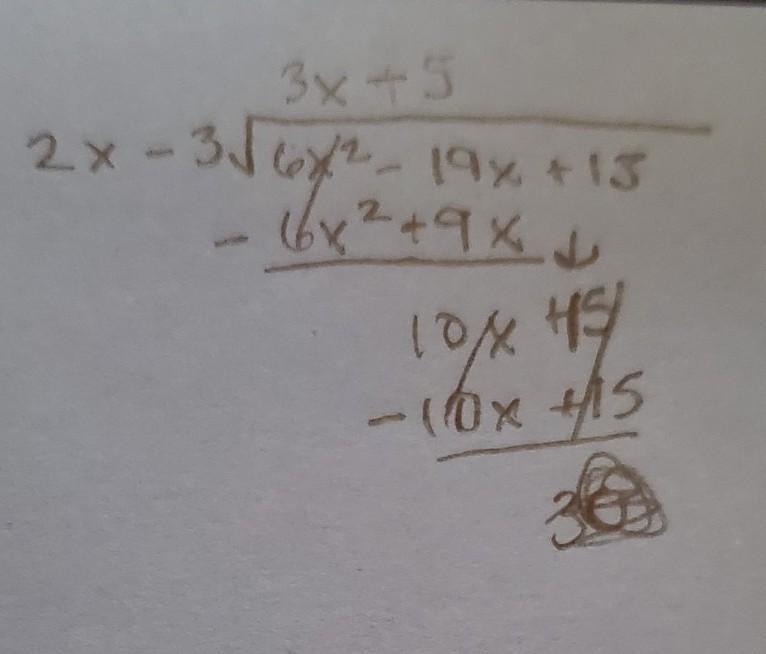 3x + 5
2x - 3√6x² - 19x + 15
- 6x² + 9x ↓
10x + 15
- 10x + 15
3